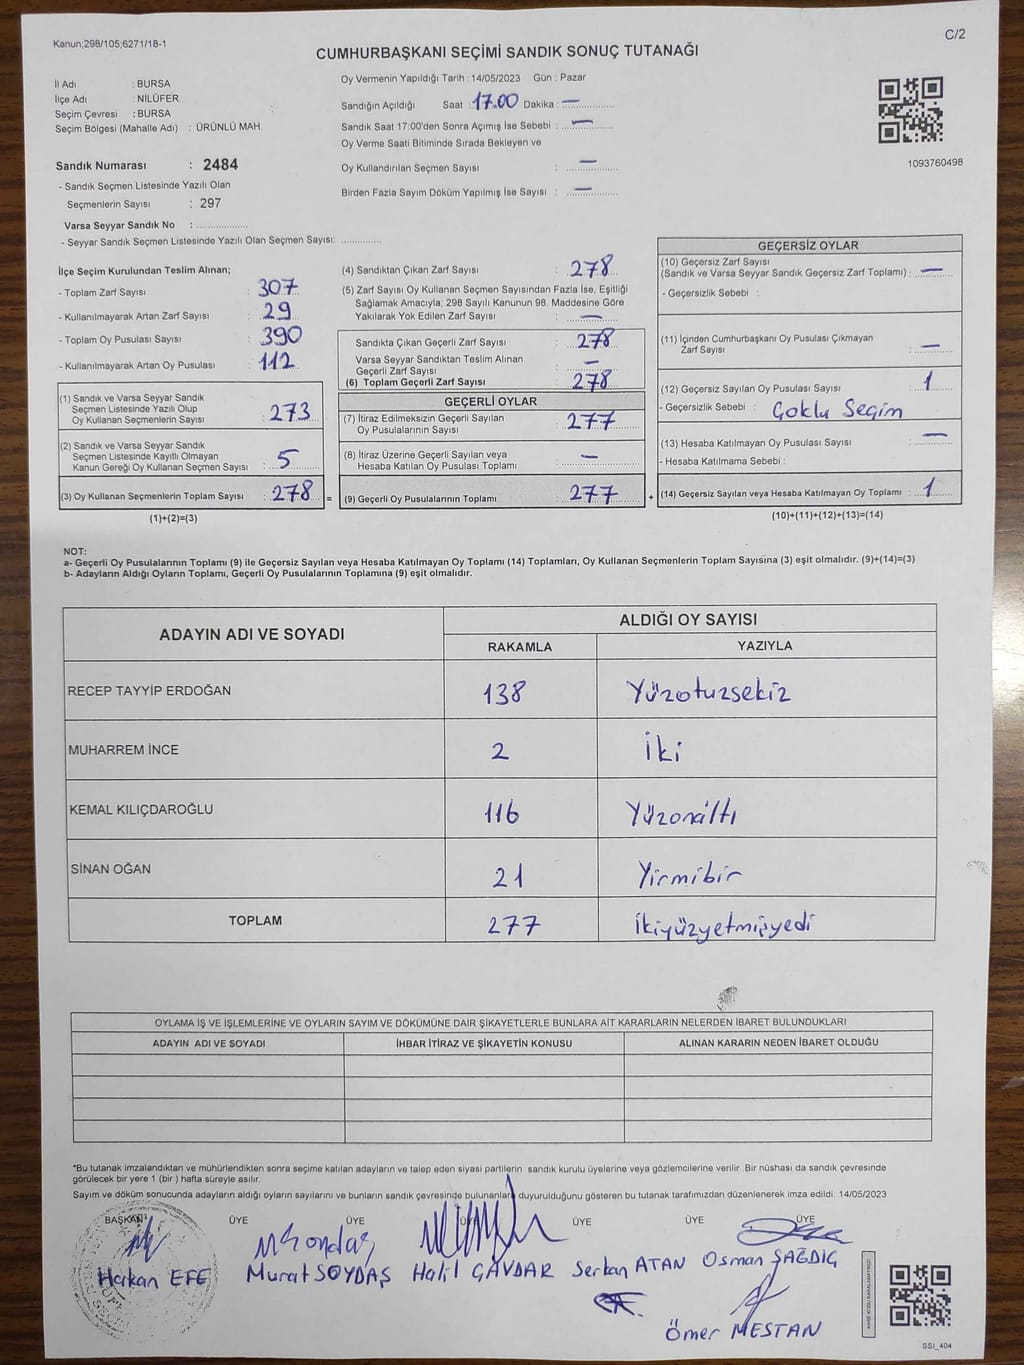 Kanun;298/105;6271/18-1
C/2
CUMHURBAŞKANI SEÇİMİ SANDIK SONUÇ TUTANAĞI
İl Adı : BURSA
İlçe Adı : NİLÜFER
Seçim Çevresi : BURSA
Seçim Bölgesi (Mahalle Adı) : ÜRÜNLÜ MAH.
Oy Vermenin Yapıldığı Tarih : 14/05/2023 Gün : Pazar
Sandığın Açıldığı Saat : 17.00 Dakika : —
Sandık Saat 17:00'den Sonra Açımış İse Sebebi : —
Oy Verme Saati Bitiminde Sırada Bekleyen ve
Oy Kullandırılan Seçmen Sayısı : —
Birden Fazla Sayım Döküm Yapılmış İse Sayısı : —
1093760498
Sandık Numarası : 2484
- Sandık Seçmen Listesinde Yazılı Olan
Seçmenlerin Sayısı : 297
Varsa Seyyar Sandık No : ..................
- Seyyar Sandık Seçmen Listesinde Yazılı Olan Seçmen Sayısı: ..............
İlçe Seçim Kurulundan Teslim Alınan;
- Toplam Zarf Sayısı : 307
- Kullanılmayarak Artan Zarf Sayısı : 29
- Toplam Oy Pusulası Sayısı : 390
- Kullanılmayarak Artan Oy Pusulası : 112
(1) Sandık ve Varsa Seyyar Sandık
Seçmen Listesinde Yazılı Olup
Oy Kullanan Seçmenlerin Sayısı : 273
(2) Sandık ve Varsa Seyyar Sandık
Seçmen Listesinde Kayıtlı Olmayan
Kanun Gereği Oy Kullanan Seçmen Sayısı : 5
(3) Oy Kullanan Seçmenlerin Toplam Sayısı : 278 =
(1)+(2)=(3)
(4) Sandıktan Çıkan Zarf Sayısı : 278
(5) Zarf Sayısı Oy Kullanan Seçmen Sayısından Fazla İse, Eşitliği
Sağlamak Amacıyla; 298 Sayılı Kanunun 98. Maddesine Göre
Yakılarak Yok Edilen Zarf Sayısı : —
Sandıkta Çıkan Geçerli Zarf Sayısı : 278
Varsa Seyyar Sandıktan Teslim Alınan
Geçerli Zarf Sayısı : —
(6) Toplam Geçerli Zarf Sayısı : 278
GEÇERLİ OYLAR
(7) İtiraz Edilmeksizin Geçerli Sayılan
Oy Pusulalarının Sayısı : 277
(8) İtiraz Üzerine Geçerli Sayılan veya
Hesaba Katılan Oy Pusulası Toplamı : —
(9) Geçerli Oy Pusulalarının Toplamı : 277 +
GEÇERSİZ OYLAR
(10) Geçersiz Zarf Sayısı
(Sandık ve Varsa Seyyar Sandık Geçersiz Zarf Toplamı) : —
- Geçersizlik Sebebi :
(11) İçinden Cumhurbaşkanı Oy Pusulası Çıkmayan
Zarf Sayısı : —
(12) Geçersiz Sayılan Oy Pusulası Sayısı : 1
- Geçersizlik Sebebi : Çoklu Seçim
(13) Hesaba Katılmayan Oy Pusulası Sayısı : —
- Hesaba Katılmama Sebebi :
(14) Geçersiz Sayılan veya Hesaba Katılmayan Oy Toplamı : 1
(10)+(11)+(12)+(13)=(14)
NOT:
a- Geçerli Oy Pusulalarının Toplamı (9) ile Geçersiz Sayılan veya Hesaba Katılmayan Oy Toplamı (14) Toplamları, Oy Kullanan Seçmenlerin Toplam Sayısına (3) eşit olmalıdır. (9)+(14)=(3)
b- Adayların Aldığı Oyların Toplamı, Geçerli Oy Pusulalarının Toplamına (9) eşit olmalıdır.
ADAYIN ADI VE SOYADI
ALDIĞI OY SAYISI
RAKAMLA YAZIYLA
RECEP TAYYİP ERDOĞAN 138 Yüzotuzsekiz
MUHARREM İNCE 2 İki
KEMAL KILIÇDAROĞLU 116 Yüzonaltı
SİNAN OĞAN 21 Yirmibir
TOPLAM 277 İkiyüzyetmişyedi
OYLAMA İŞ VE İŞLEMLERİNE VE OYLARIN SAYIM VE DÖKÜMÜNE DAİR ŞİKAYETLERLE BUNLARA AİT KARARLARIN NELERDEN İBARET BULUNDUKLARI
ADAYIN ADI VE SOYADI İHBAR İTİRAZ VE ŞİKAYETİN KONUSU ALINAN KARARIN NEDEN İBARET OLDUĞU
*Bu tutanak imzalandıktan ve mühürlendikten sonra seçime katılan adayların ve talep eden siyasi partilerin sandık kurulu üyelerine veya gözlemcilerine verilir .Bir nüshası da sandık çevresinde
görülecek bir yere 1 (bir ) hafta süreyle asılır.
Sayım ve döküm sonucunda adayların aldığı oyların sayılarını ve bunların sandık çevresinde bulunanlara duyurulduğunu gösteren bu tutanak tarafımızdan düzenlenerek imza edildi. 14/05/2023
BAŞKAN ÜYE ÜYE ÜYE ÜYE ÜYE ÜYE
Hakan EFE Murat SOYDAŞ Halil ÇAVDAR Serkan ATAN Osman SAĞDIÇ
Ömer MESTAN
SSI_404